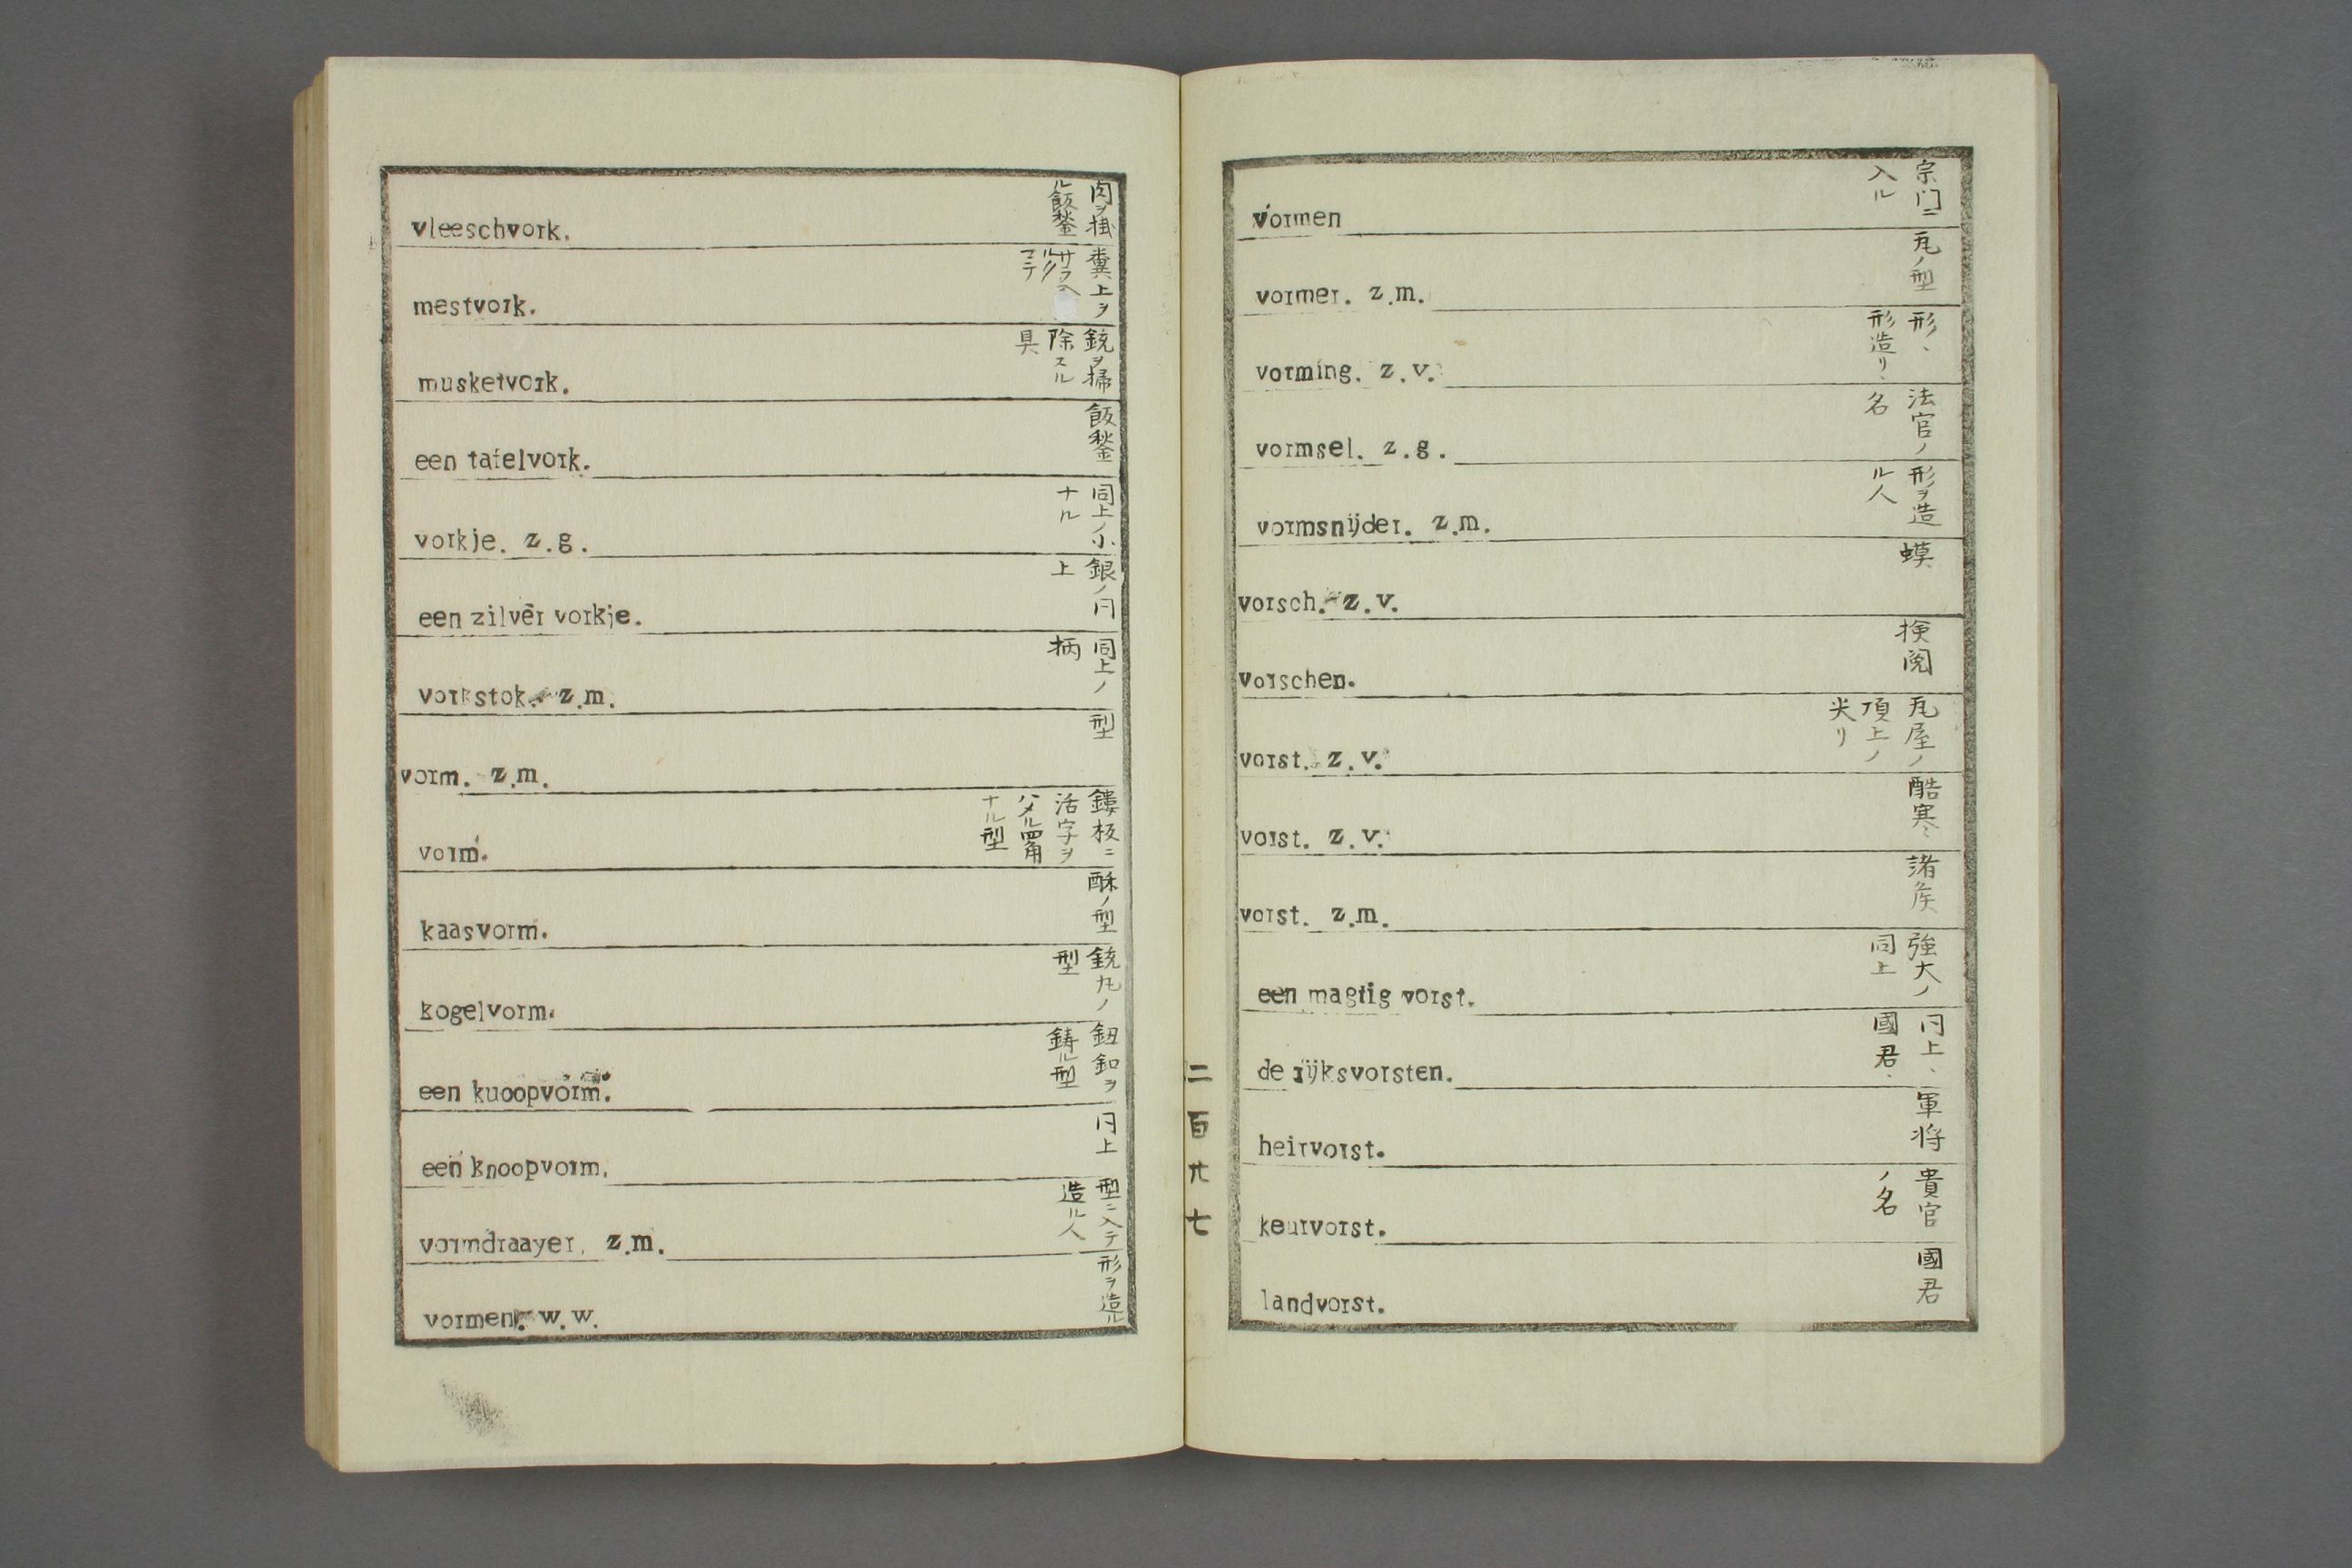 vleeschvork.
肉ヲ掛
ル飯鍫
mestvork.
糞上ヲ
musketvork.
銃ヲ掃
除スル
具
een tafelvork.
飯鍫
vorkje. z.g.
同上ノ小
ナル
een zilver vorkje.
銀ノ冋
上
vorkstok. z.m.
同上ノ
柄
vorm. z.m.
型
vorm.
鏤板ニ
活字ヲ
ハメル四角
ナル型
kaasvorm.
酥ノ型
kogelvorm.
銃丸ノ
型
een kuoopvorm.
鈕釦ヲ
鋳ル型
een knoopvorm.
冋上
vormdraayer. z.m.
型ニ入テ
造ル人
vormen. w.w.
形ヲ造ル
vormen
宗门ニ
入ル
vormer. z.m.
瓦ノ型
vorming. z.v.
形、
形造リ、
vormsel. z.g.
法官ノ
名
vormsnijder. z.m.
形ヲ造
ル人
vorsch. z.v.
蟆
vorschen.
検閲
vorst. z.v.
瓦屋ノ
頂上ノ
尖リ
vorst. z.v.
酷寒
vorst. z.m.
諸侯
een magtig vorst.
強大ノ
同上
de rijksvorsten.
冋上、
國君、
heirvorst.
軍将
keurvorst.
貴官
ノ名
landvorst.
國君
二百卅七